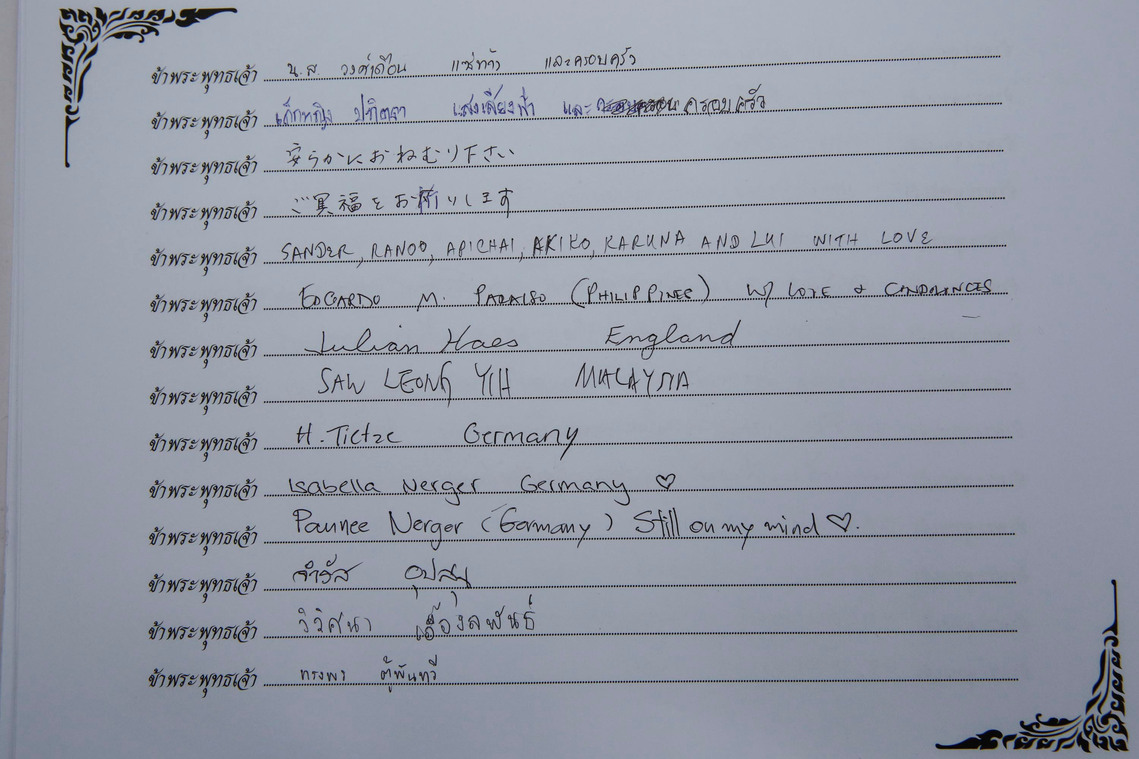 ข้าพระพุทธเจ้า น.ส. วงศ์เดือน แซ่ท้าว และครอบครัว
ข้าพระพุทธเจ้า เด็กหญิง ปาณิตา แสงเสียงฟ้า และ ครอบครัว
ข้าพระพุทธเจ้า 安らかにおねむり下さい
ข้าพระพุทธเจ้า ご冥福をお祈りします
ข้าพระพุทธเจ้า SANDER, RANOO, APICHAI, AKIKO, KARUNA AND LUI WITH LOVE
ข้าพระพุทธเจ้า EDGARDO M. PARAISO (PHILIPPINES) W/ LOVE & CONDOLENCES
ข้าพระพุทธเจ้า Julian Haes England
ข้าพระพุทธเจ้า SAW LEONG YIH MALAYSIA
ข้าพระพุทธเจ้า H. Tietze Germany
ข้าพระพุทธเจ้า Isabella Nerger Germany ♡
ข้าพระพุทธเจ้า Paunee Nerger (Germany) Still on my mind ♡.
ข้าพระพุทธเจ้า
ข้าพระพุทธเจ้า วิวิศนา
ข้าพระพุทธเจ้า ทรงพา ตู้พันทวี